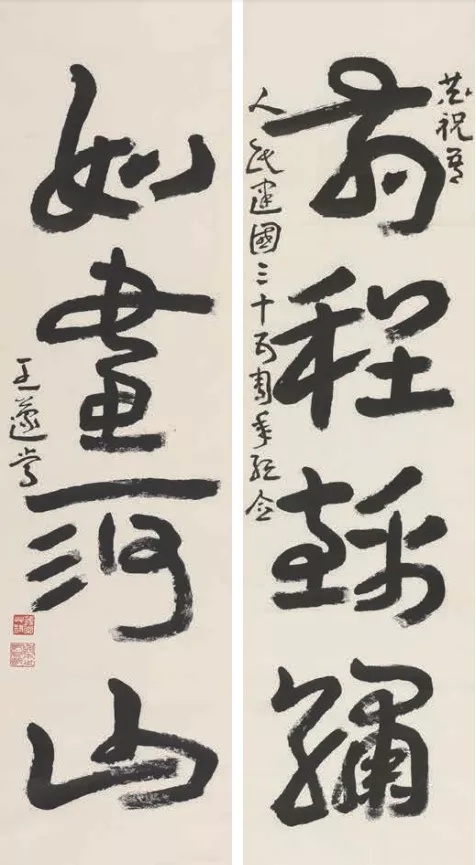 恭祝吾
前程錦繡
人民建國三十五周年紀念
如畫河山
王蘧常